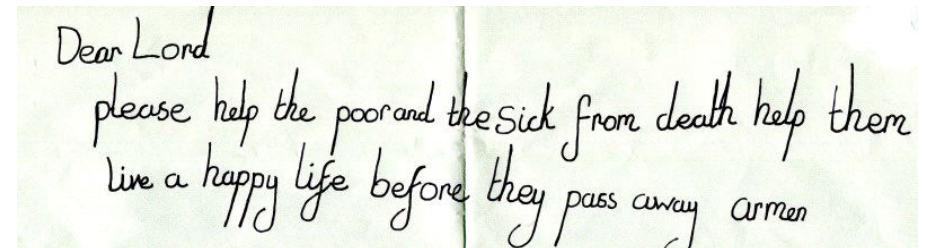 Dear Lord
please help the poor and the sick from death help them
live a happy life before they pass away armen